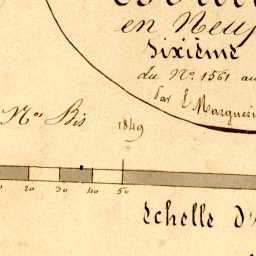 en Neuf
Sixième
du N.º 1561 au
Par E. Marguerit
N.os Bis
1849
10 20 30 40 50
Echelle d'